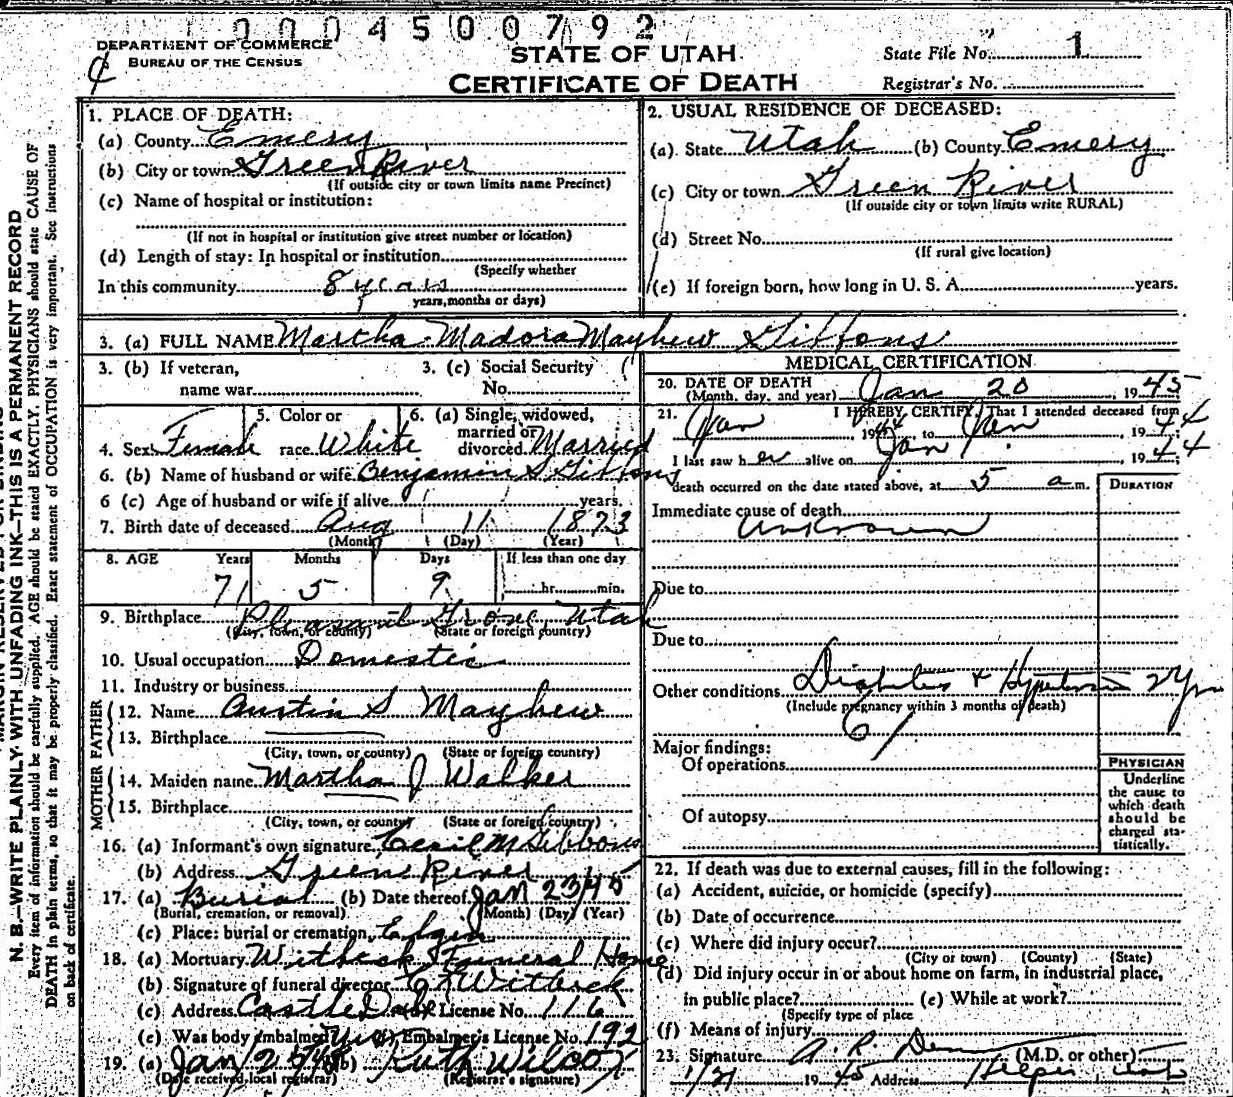 0004500792
DEPARTMENT OF COMMERCE
BUREAU OF THE CENSUS
STATE OF UTAH
CERTIFICATE OF DEATH
State File No. 1
Registrar's No.
N. B.—WRITE PLAINLY WITH UNFADING INK—THIS IS A PERMANENT RECORD
Every item of information should be carefully supplied. AGE should be stated EXACTLY. PHYSICIANS should state CAUSE OF
DEATH in plain terms, so that it may be properly classified. Exact statement of OCCUPATION is very important. See instructions
on back of certificate.
1. PLACE OF DEATH:
(a) County Emery
(b) City or town Green River
(If outside city or town limits name Precinct)
(c) Name of hospital or institution:
(If not in hospital or institution give street number or location)
(d) Length of stay: In hospital or institution
(Specify whether
In this community 8 years
years, months or days)
2. USUAL RESIDENCE OF DECEASED:
(a) State Utah (b) County Emery
(c) City or town Green River
(If outside city or town limits write RURAL)
(d) Street No.
(If rural give location)
(e) If foreign born, how long in U. S. A. years.
3. (a) FULL NAME Martha Madora Mayhew Gibbons
3. (b) If veteran,
name war
3. (c) Social Security
No.
4. Sex Female
5. Color or
race White
6. (a) Single, widowed,
married or
divorced Married
6. (b) Name of husband or wife Benjamin S Gibbons
6 (c) Age of husband or wife if alive years.
7. Birth date of deceased Aug 11 1873
(Month) (Day) (Year)
8. AGE Years Months Days If less than one day
71 5 9 hr. min.
9. Birthplace Pleasant Grove, Utah
(City, town, or county) (State or foreign country)
10. Usual occupation Domestic
11. Industry or business
FATHER
12. Name Austin S Mayhew
13. Birthplace
(City, town, or county) (State or foreign country)
MOTHER
14. Maiden name Martha J Walker
15. Birthplace
(City, town, or county) (State or foreign country)
16. (a) Informant's own signature Cecil M Gibbons
(b) Address Green River
17. (a) Burial (b) Date thereof Jan 23 45
(Burial, cremation, or removal) (Month) (Day) (Year)
(c) Place: burial or cremation Elgin
18. (a) Mortuary Witbeck Funeral Home
(b) Signature of funeral director Witbeck
(c) Address Castle Dale License No. 116
(e) Was body embalmed Yes Embalmer's License No. 192
19. (a) Jan (b) Ruth Wilcox
(Date received local registrar) (Registrar's signature)
MEDICAL CERTIFICATION
20. DATE OF DEATH
(Month, day, and year) Jan 20 1945
21. I HEREBY CERTIFY, That I attended deceased from
Jan 1944 to Jan 1944
I last saw her alive on Jan 1944
death occurred on the date stated above, at 5 a m.
DURATION
Immediate cause of death
Unknown
Due to
Due to
Other conditions Diabetes & Hypertension 2 yrs
(Include pregnancy within 3 months of death)
61
Major findings:
Of operations
Of autopsy
PHYSICIAN
Underline
the cause to
which death
should be
charged sta-
tistically.
22. If death was due to external causes, fill in the following:
(a) Accident, suicide, or homicide (specify)
(b) Date of occurrence
(c) Where did injury occur?
(City or town) (County) (State)
(d) Did injury occur in or about home on farm, in industrial place,
in public place? (e) While at work?
(Specify type of place
(f) Means of injury
23. Signature A R (M.D. or other)
1/21 1945 Address Helper, Utah